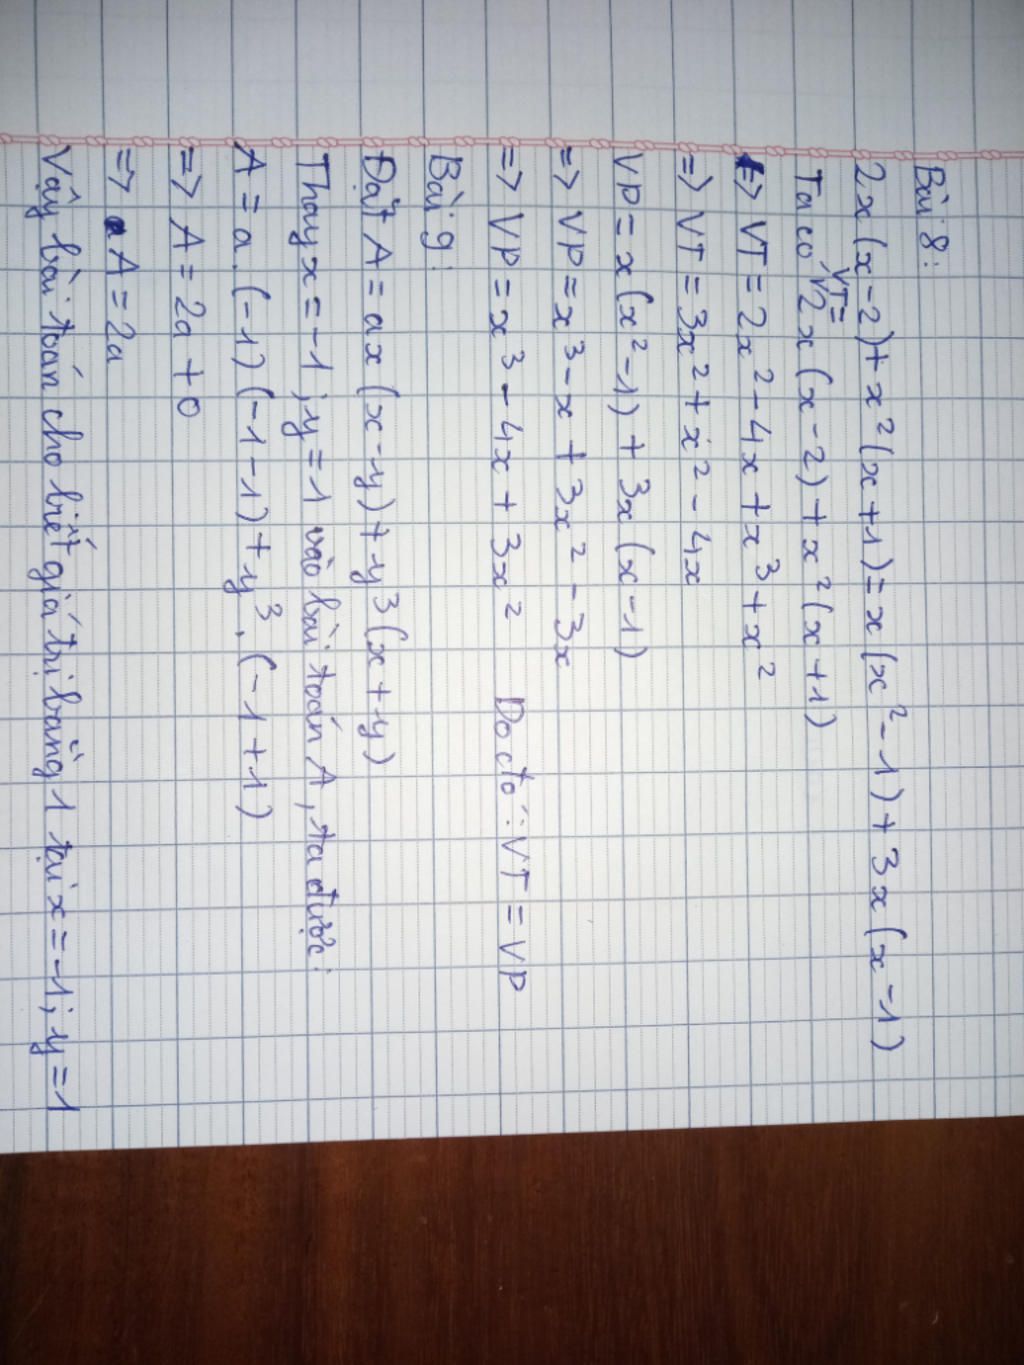 Bài 8:
2x(x-2)+x²(x+1)=x(x²-1)+3x(x-1)
Ta có VT= 2x(x-2)+x²(x+1)
=> VT=2x²-4x+x³+x²
=> VT=3x²+x²-4x
VP=x(x²-1)+3x(x-1)
=> VP=x³-x+3x²-3x
=> VP=x³-4x+3x² Do đó: VT=VP
Bài 9:
Đặt A=ax(x-y)+y³(x+y)
Thay x=-1;y=1 vào bài toán A, ta được:
A=a.(-1)(-1-1)+y³.(-1+1)
=> A=2a+0
=> A=2a
Vậy bài toán cho biết giá trị bằng 1 tại x=-1;y=1